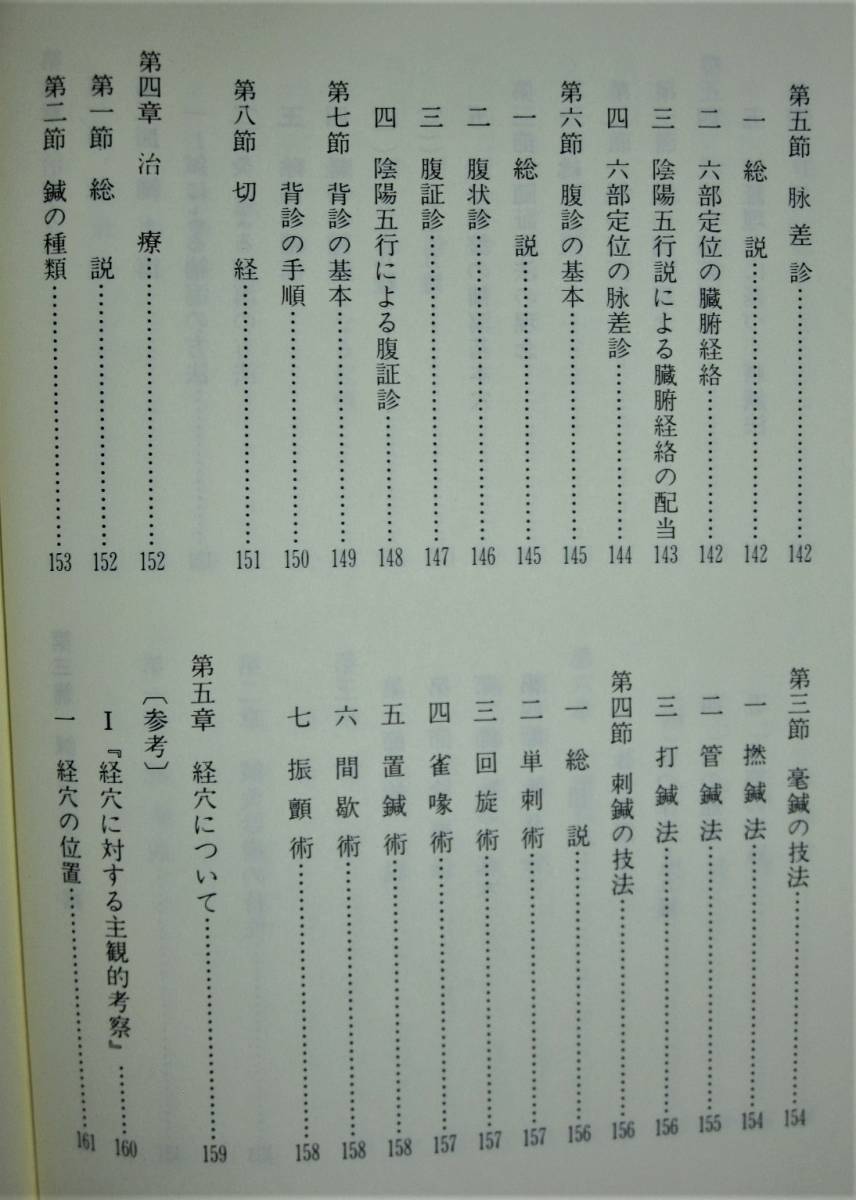 第五節　脉差診…………142
一　総　説…………142
二　六部定位の臓腑経絡…………142
三　陰陽五行説による臓腑経絡の配当　143
四　六部定位の脉差診…………144
第六節　腹診の基本…………145
一　総　説…………145
二　腹状診…………146
三　腹証診…………147
四　陰陽五行による腹証診…………148
第七節　背診の基本…………149
背診の手順…………150
第八節　切　経…………151
第四章　治　療…………152
第一節　総　説…………152
第二節　鍼の種類…………153
第三節　毫鍼の技法…………154
一　撚鍼法…………154
二　管鍼法…………155
三　打鍼法…………156
第四節　刺鍼の技法…………156
一　総　説…………156
二　単刺術…………157
三　回旋術…………157
四　雀喙術…………157
五　置鍼術…………158
六　間歇術…………158
七　振顫術…………158
第五章　経穴について…………159
〔参考〕
Ⅰ『経穴に対する主観的考察』……160
一　経穴の位置…………161